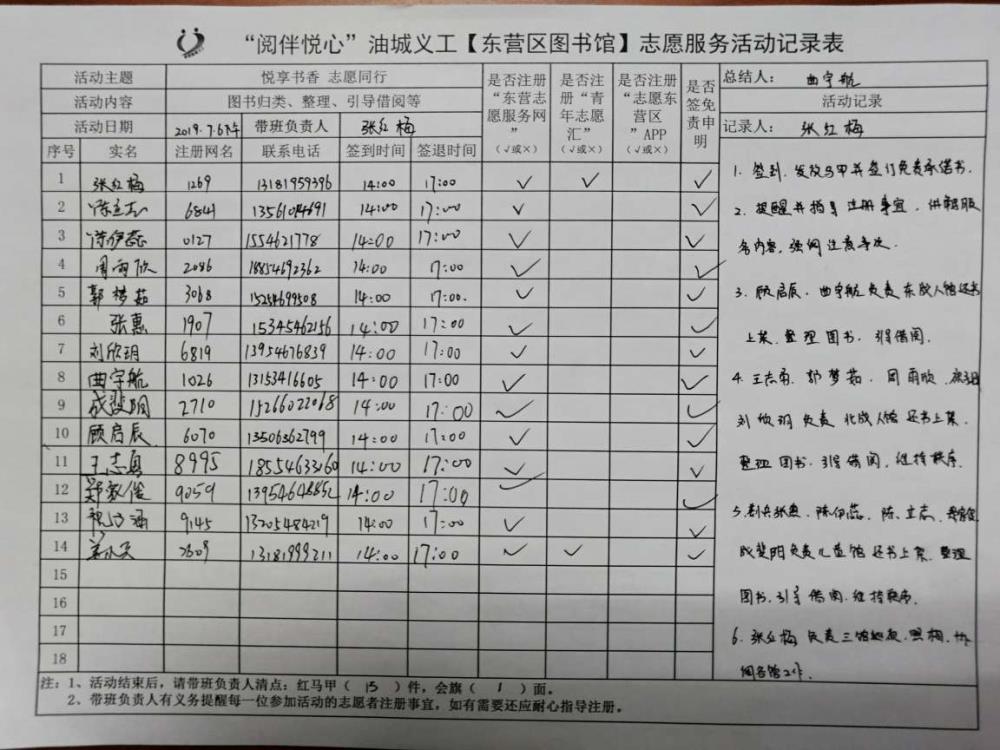 “阅伴悦心”油城义工【东营区图书馆】志愿服务活动记录表
活动主题 悦享书香 志愿同行 是否注册“东营志愿服务网”（√或×） 是否注册“青年志愿汇”（√或×） 是否注册“志愿东营区”APP（√或×） 是否签免责申明 总结人： 曲宇航
活动内容 图书归类、整理、引导借阅等 活动记录
活动日期 2019.7.6下午 带班负责人 张红梅 记录人： 张红梅
序号 实名 注册网名 联系电话 签到时间 签退时间
1 张红梅 1269 13181959396 14:00 17:00 √ √ √
2 陈立志 6841 14:00 17:00 √ √
3 陈伊蕊 0127 1554621778 14:00 17:00 √ √
4 周雨欣 2086 18854692362 14:00 17:00 √ √
5 郭梦茹 3068 15254699508 14:00 17:00. √ √
6 张惠 1907 15345462156 14:00 17:00 √ √
7 刘欣玥 6819 13954676839 14:00 17:00 √ √
8 曲宇航 1026 13153416605 14:00 17:00 √ √
9 成斐玥 2710 15266022068 14:00 17:00 √ √
10 顾启辰 6070 13506362799 14:00 17:00 √ √
11 王志勇 8995 18554633160 14:00 17:00 √ √
12 9059 14:00 17:00 √ √
13 9145 13205484219 14:00 17:00 √ √
14 2609 13181999211 14:00 17:00 √ √ √
15
16
17
18
1. 签到、发放马甲并签订免责承诺书.
2. 提醒并指导注册事宜，讲解服
务内容，强调注意事项.
3. 顾启辰、曲宇航负责东成人馆还书
上架、整理图书、引导借阅.
4. 王志勇、郭梦茹、周雨欣、
刘欣玥负责北成人馆还书上架、
整理图书、引导借阅，维持秩序.
5. 张惠、陈伊蕊、陈立志、
成斐玥负责儿童馆还书上架、整理
图书、引导借阅、维持秩序.
6. 张红梅负责三馆、照相、协
调各馆工作.
注：1、活动结束后，请带班负责人清点：红马甲（ 15 ）件，会旗（ 1 ）面。
2、带班负责人有义务提醒每一位参加活动的志愿者注册事宜，如有需要还应耐心指导注册。